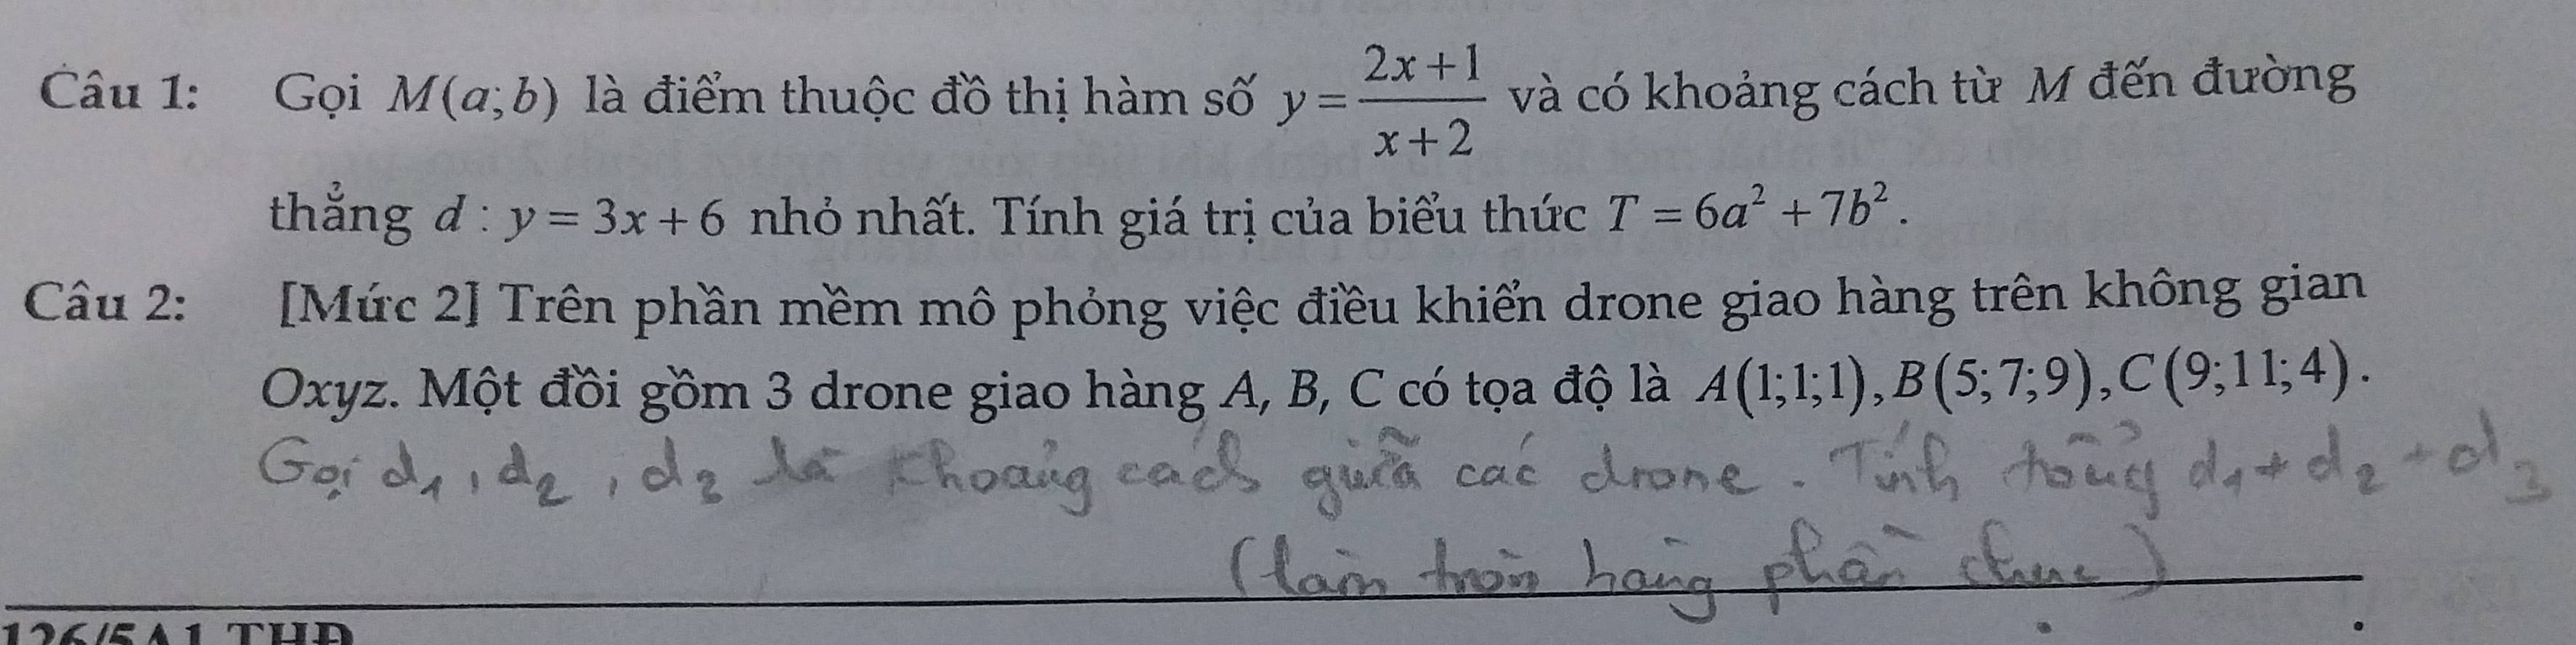 Câu 1: Gọi M(a;b) là điểm thuộc đồ thị hàm số y = (2x+1)/(x+2) và có khoảng cách từ M đến đường
thẳng d : y = 3x + 6 nhỏ nhất. Tính giá trị của biểu thức T = 6a² + 7b².
Câu 2: [Mức 2] Trên phần mềm mô phỏng việc điều khiển drone giao hàng trên không gian
Oxyz. Một đồi gồm 3 drone giao hàng A, B, C có tọa độ là A(1;1;1), B(5;7;9), C(9;11;4).
Gọi d₁, d₂, d₃ là khoảng cách giữa các drone. Tính tổng d₁ + d₂ + d₃
(làm tròn hàng phần chục)
126/5A1 THĐ